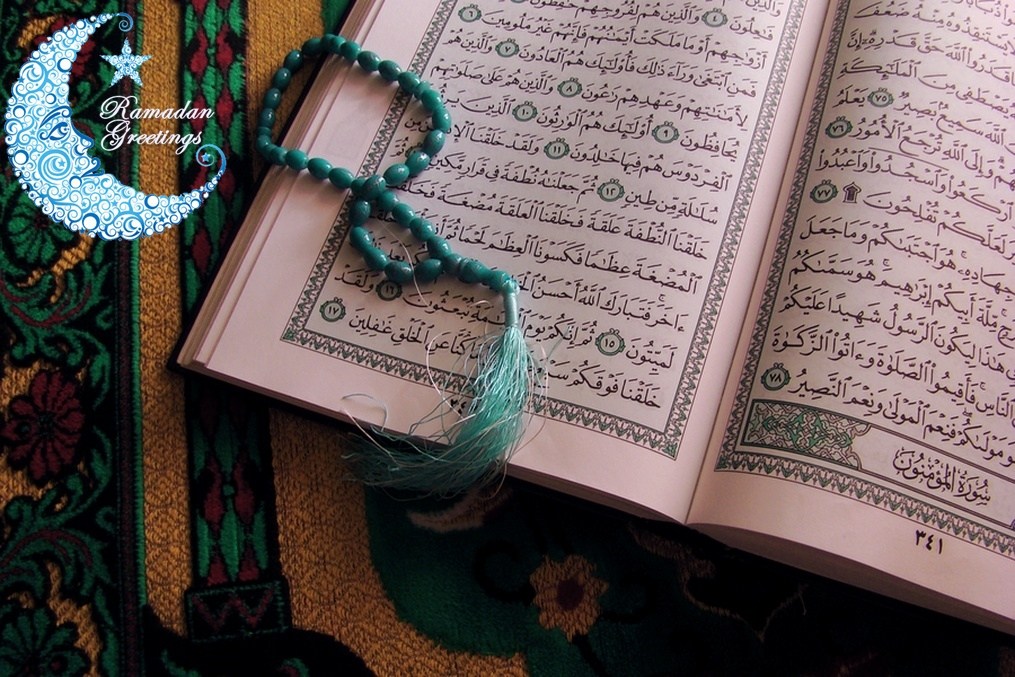 Ramadan
Greetings
وَالَّذِينَ هُمْ لِفُرُوجِهِمْ حَٰفِظُونَ
أَزْوَٰجِهِمْ أَوْ مَا مَلَكَتْ أَيْمَٰنُهُمْ فَإِنَّهُمْ غَيْرُ مَلُومِينَ ٦
فَمَنِ ابْتَغَىٰ وَرَآءَ ذَٰلِكَ فَأُولَٰٓئِكَ هُمُ الْعَادُونَ ٧ وَالَّذِينَ هُمْ
لِأَمَٰنَٰتِهِمْ وَعَهْدِهِمْ رَٰعُونَ ٨ وَالَّذِينَ هُمْ عَلَىٰ صَلَوَٰتِهِمْ
يُحَافِظُونَ ٩ أُولَٰٓئِكَ هُمُ الْوَٰرِثُونَ ١٠ الَّذِينَ
الْفِرْدَوْسَ هُمْ فِيهَا خَٰلِدُونَ ١١ وَلَقَدْ خَلَقْنَا
سُلَٰلَةٍ مِّن طِينٍ ١٢ ثُمَّ جَعَلْنَٰهُ نُطْفَةً فِي قَرَارٍ مَّكِينٍ
خَلَقْنَا النُّطْفَةَ عَلَقَةً فَخَلَقْنَا الْعَلَقَةَ مُضْغَةً فَخَلَقْنَا
الْمُضْغَةَ عِظَٰمًا فَكَسَوْنَا الْعِظَٰمَ لَحْمًا ثُمَّ
ءَاخَرَ فَتَبَارَكَ اللَّهُ أَحْسَنُ
لَمَيِّتُونَ ١٥ ثُمَّ إِنَّكُمْ يَوْمَ تُبْعَثُونَ ١٦ وَلَقَدْ
خَلَقْنَا فَوْقَكُمْ كُنَّا عَنِ الْخَلْقِ غَٰفِلِينَ ١٧
يَسْتَنقِذُوهُ مِنْهُ ضَعُفَ
قَدَرُوا اللَّهَ حَقَّ قَدْرِهِ إِنَّ
يَصْطَفِي مِنَ الْمَلَٰٓئِكَةِ
اللَّهَ سَمِيعٌ بَصِيرٌ ٧٥ يَعْلَمُ
وَإِلَى اللَّهِ تُرْجَعُ الْأُمُورُ ٧٦
ارْكَعُوا وَاسْجُدُوا وَاعْبُدُوا
لَعَلَّكُمْ تُفْلِحُونَ ۩ ٧٧
جِهَادِهِ هُوَ اجْتَبَىٰكُمْ وَمَا جَعَلَ
مِّلَّةَ أَبِيكُمْ إِبْرَٰهِيمَ هُوَ سَمَّىٰكُمُ
هَٰذَا لِيَكُونَ الرَّسُولُ شَهِيدًا عَلَيْكُمْ
النَّاسِ فَأَقِيمُوا الصَّلَوٰةَ وَءَاتُوا الزَّكَوٰةَ
مَوْلَىٰكُمْ فَنِعْمَ الْمَوْلَىٰ وَنِعْمَ النَّصِيرُ ٧٨
سُورَةُ الْمُؤْمِنُونَ
٣٤١